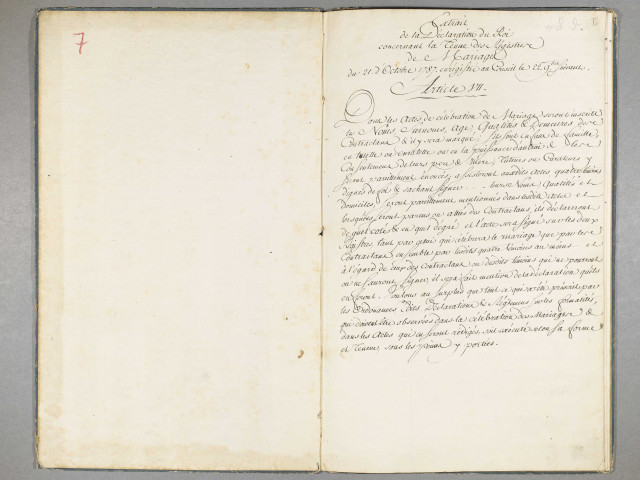 7
Extrait
de la Declaration du Roi
concernant la Tenue des Régistres
de Mariages
du 21. d'Octobre 1787. enregistré au Conseil le 22. 9bre suivant.
Article VII.
Dans les Actes de célébration de Mariage seront inscrits
les Noms, Surnoms, Age, Qualités & Demeures des
Contractans & il y sera marqué s'ils sont enfans de famille,
en tutelle ou curatelle ou en la puissance d'autrui & les
Consentemens de leurs pere & Mere, Tuteurs ou Curateurs y
seront pareillement énoncés, assisteront auxdits Actes quatre témoins
dignes de foi & sachant signer leurs Noms, Qualités et
domiciles seront pareillement mentionnés dans lesdits Actes et
lorsqu'ils seront parens ou alliés des Contractans, ils déclareront
de quel coté & en quel dégré et l'acte sera signé sur les deux
Régistres, tant par celui qui célébrera le mariage que par les
Contractans ensemble par lesdits quatre témoins au moins et
à l'égard de ceux des Contractans ou desdits témoins qui ne pourront
ou ne sauront signer, il sera fait mention de la déclaration qu'ils
en feront. Voulons au surplus que tout ce qui a été préscrit par
les Ordonnances, Edits, Déclarations & Réglemens sur les formalités,
qui doivent être observées dans la célébration des Mariages &
dans les Actes qui en seront rédigés, soit exécuté selon sa forme
et Teneur sous les peines y portées.